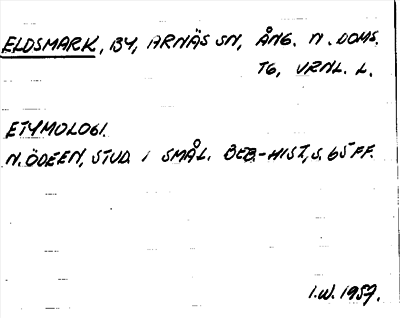 ELDSMARK, BY, ARNÄS SN, ÅNG. N. DOMS.
TG, VRNL. L.
ETYMOLOGI.
N. ÖDEEN, STUD. I SMÅL. BEB-HIST, S. 65 FF.
I.W. 1957.